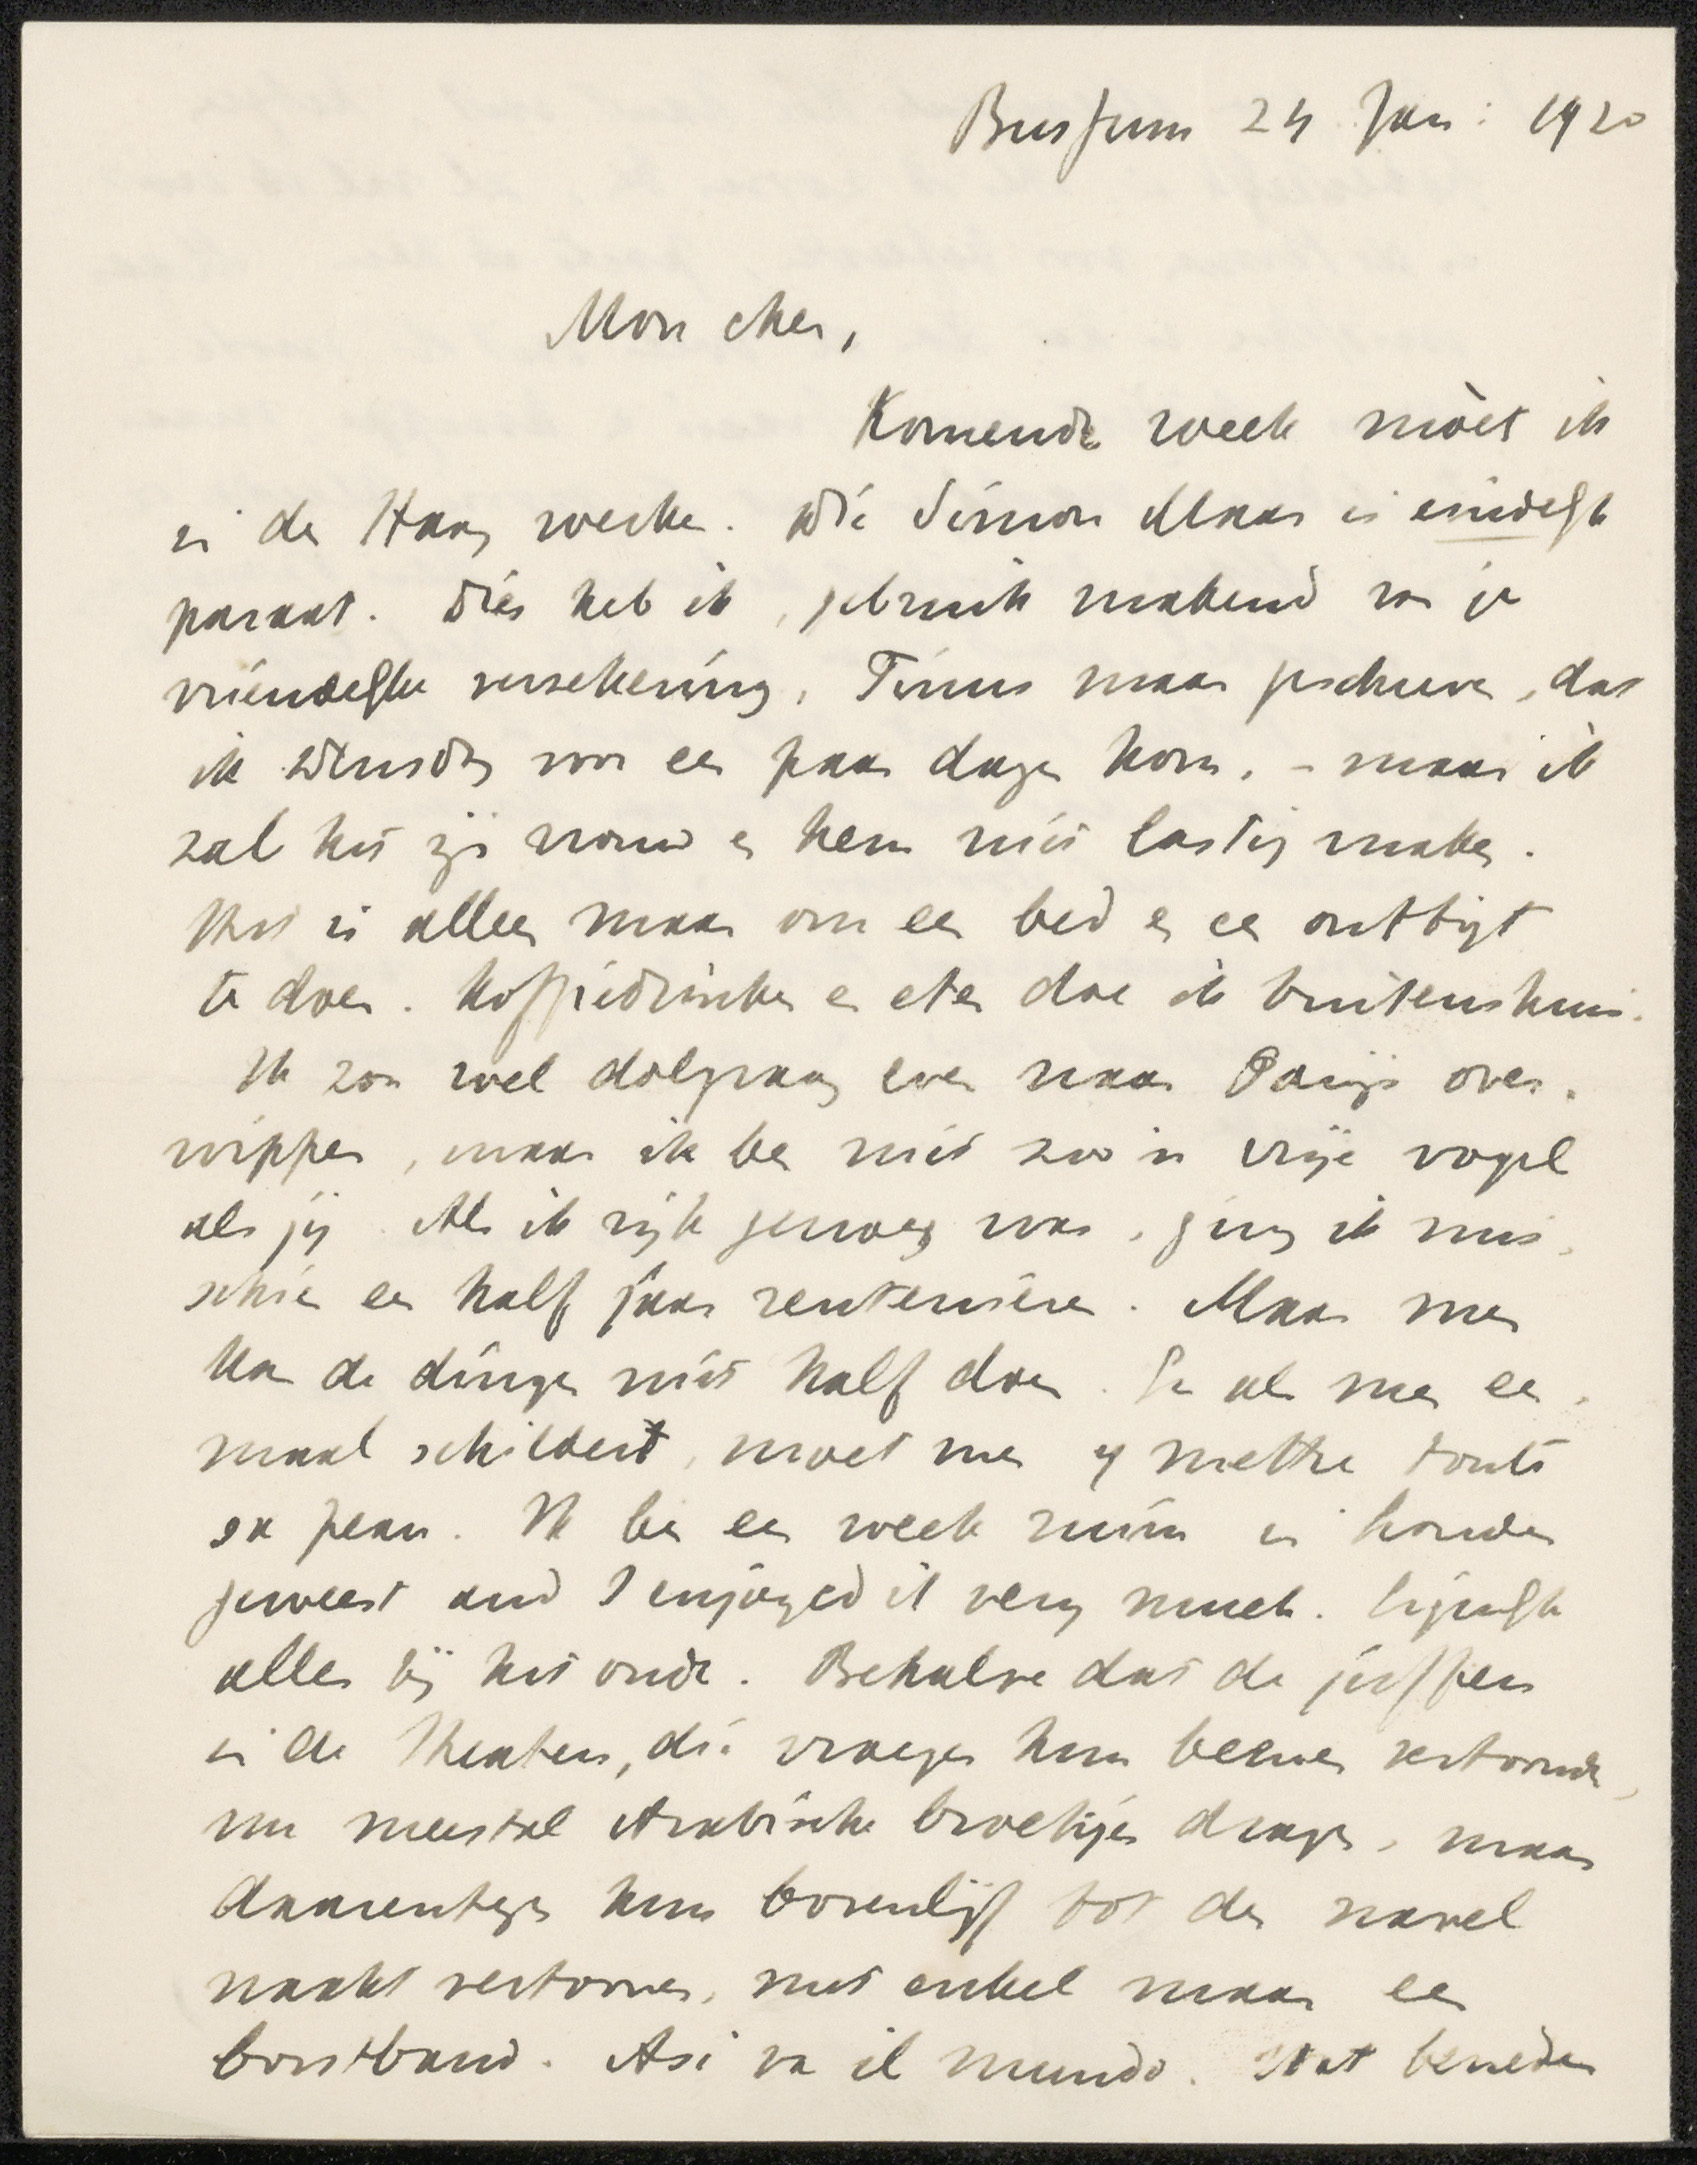 Bussum 24 Jan: 1920
Mon cher,
Komende week mòet ik
in den Haag werken. Die Simon Maas is eindelijk
paraat. Dies heb ik, gebruik makend van je
vriendelijke verzekering, Tinus maar geschreven, dat
ik Dinsdag voor een paar dagen kom, – maar ik
zal het zijn vrouw en hem niet lastig maken.
Het is alleen maar om een bed en een ontbijt
te doen. Koffiedrinken en eten doe ik buitenshuis.
Ik zou wel dolgraag even naar Parijs over-
wippen, maar ik ben niet zoo'n vrije vogel
als jij. Als ik rijk genoeg was, ging ik mis-
schien een half jaar rentenieren. Maar men
kan de dingen niet half doen. En als men een-
maal schildert, moet men y mettre toute
sa peau. Ik ben een week ruim in Londen
geweest and I enjoyed it very much. Eigenlijk
alles bij het oude. Behalve dat de juffen
in de Theaters, die vroeger hun beenen vertoonden,
nu meestal Arabische broekjes dragen, maar
daarentegen hun bovenlijf tot den navel
naakt vertoonen, met enkel maar een
borstband. Asi va il mundo. Wat beneden